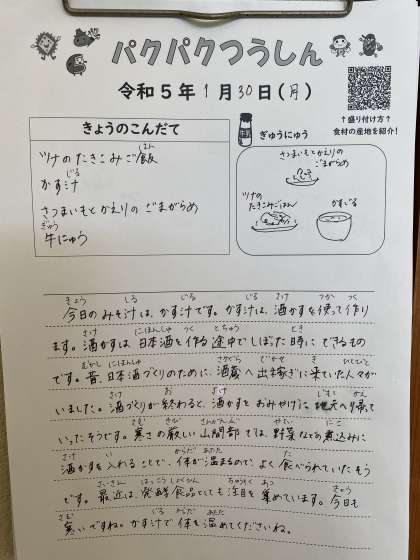 パクパクつうしん
令和5年1月30日(月)
↑盛り付け方↑
食材の産地を紹介!
きょうのこんだて
ツナのたきこみご飯
かす汁
さつまいもとかえりの ごまがらめ
牛にゅう
ぎゅうにゅう
さつまいもとかえりの
ごまがらめ
ツナの
たきこみごはん
かすじる
今日のみそ汁は、かす汁です。かす汁は、酒かすを使って作り
ます。酒かすは、日本酒を作る途中でしぼった時にできるもの
です。昔、日本酒づくりのために、酒蔵へ出稼ぎに来ていた人々が
いました。酒づくりが終わると、酒かすをおみやげに地元へ帰って
いったそうです。寒さの厳しい山間部では、野菜などの煮込みに
酒かすを入れることで、体が温まるので、よく食べられていたそう
です。最近は、発酵食品としても注目を集めています。今日も
寒いですね。かす汁で体を温めてくださいね。